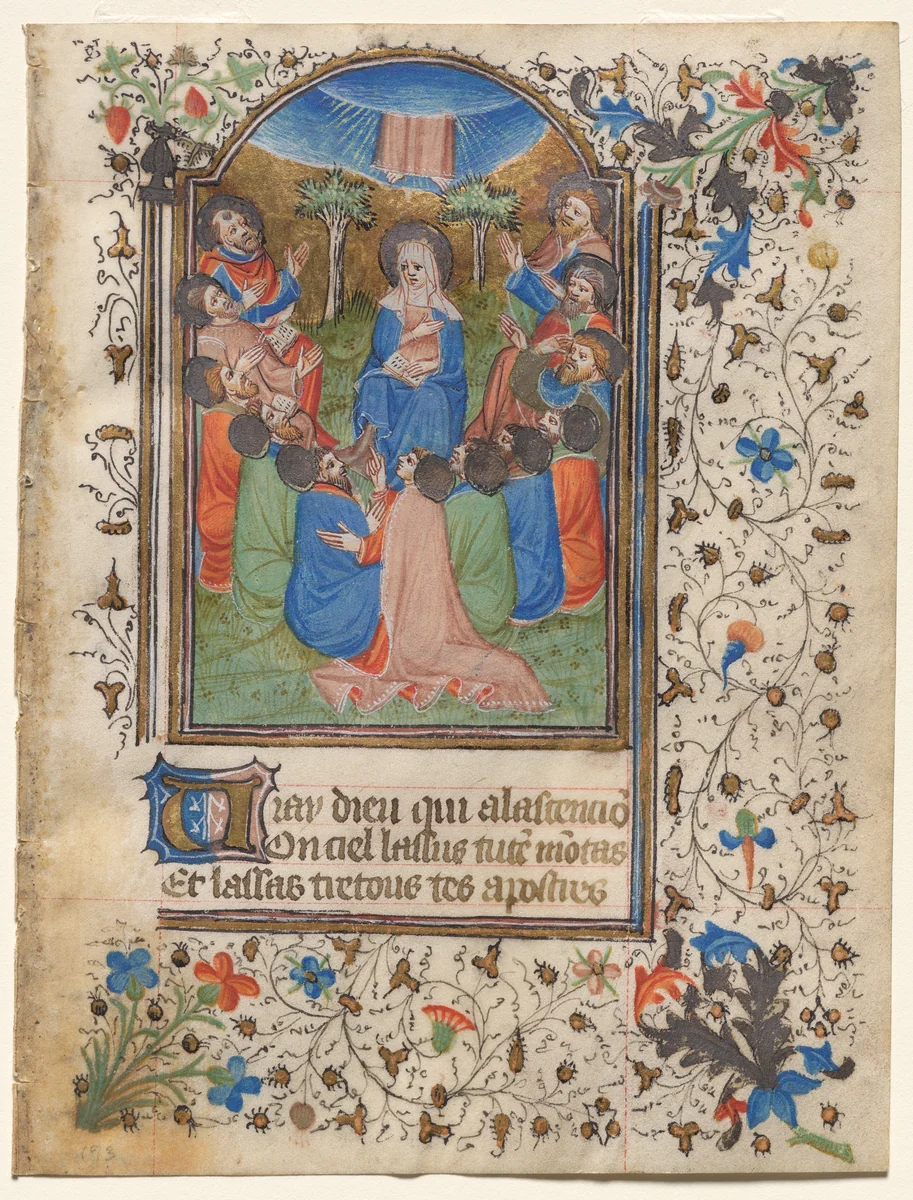 Uray dieu qui alascenciõ
On ciel lassus tutẽ mõtas
Et lassas tretous tes apostres